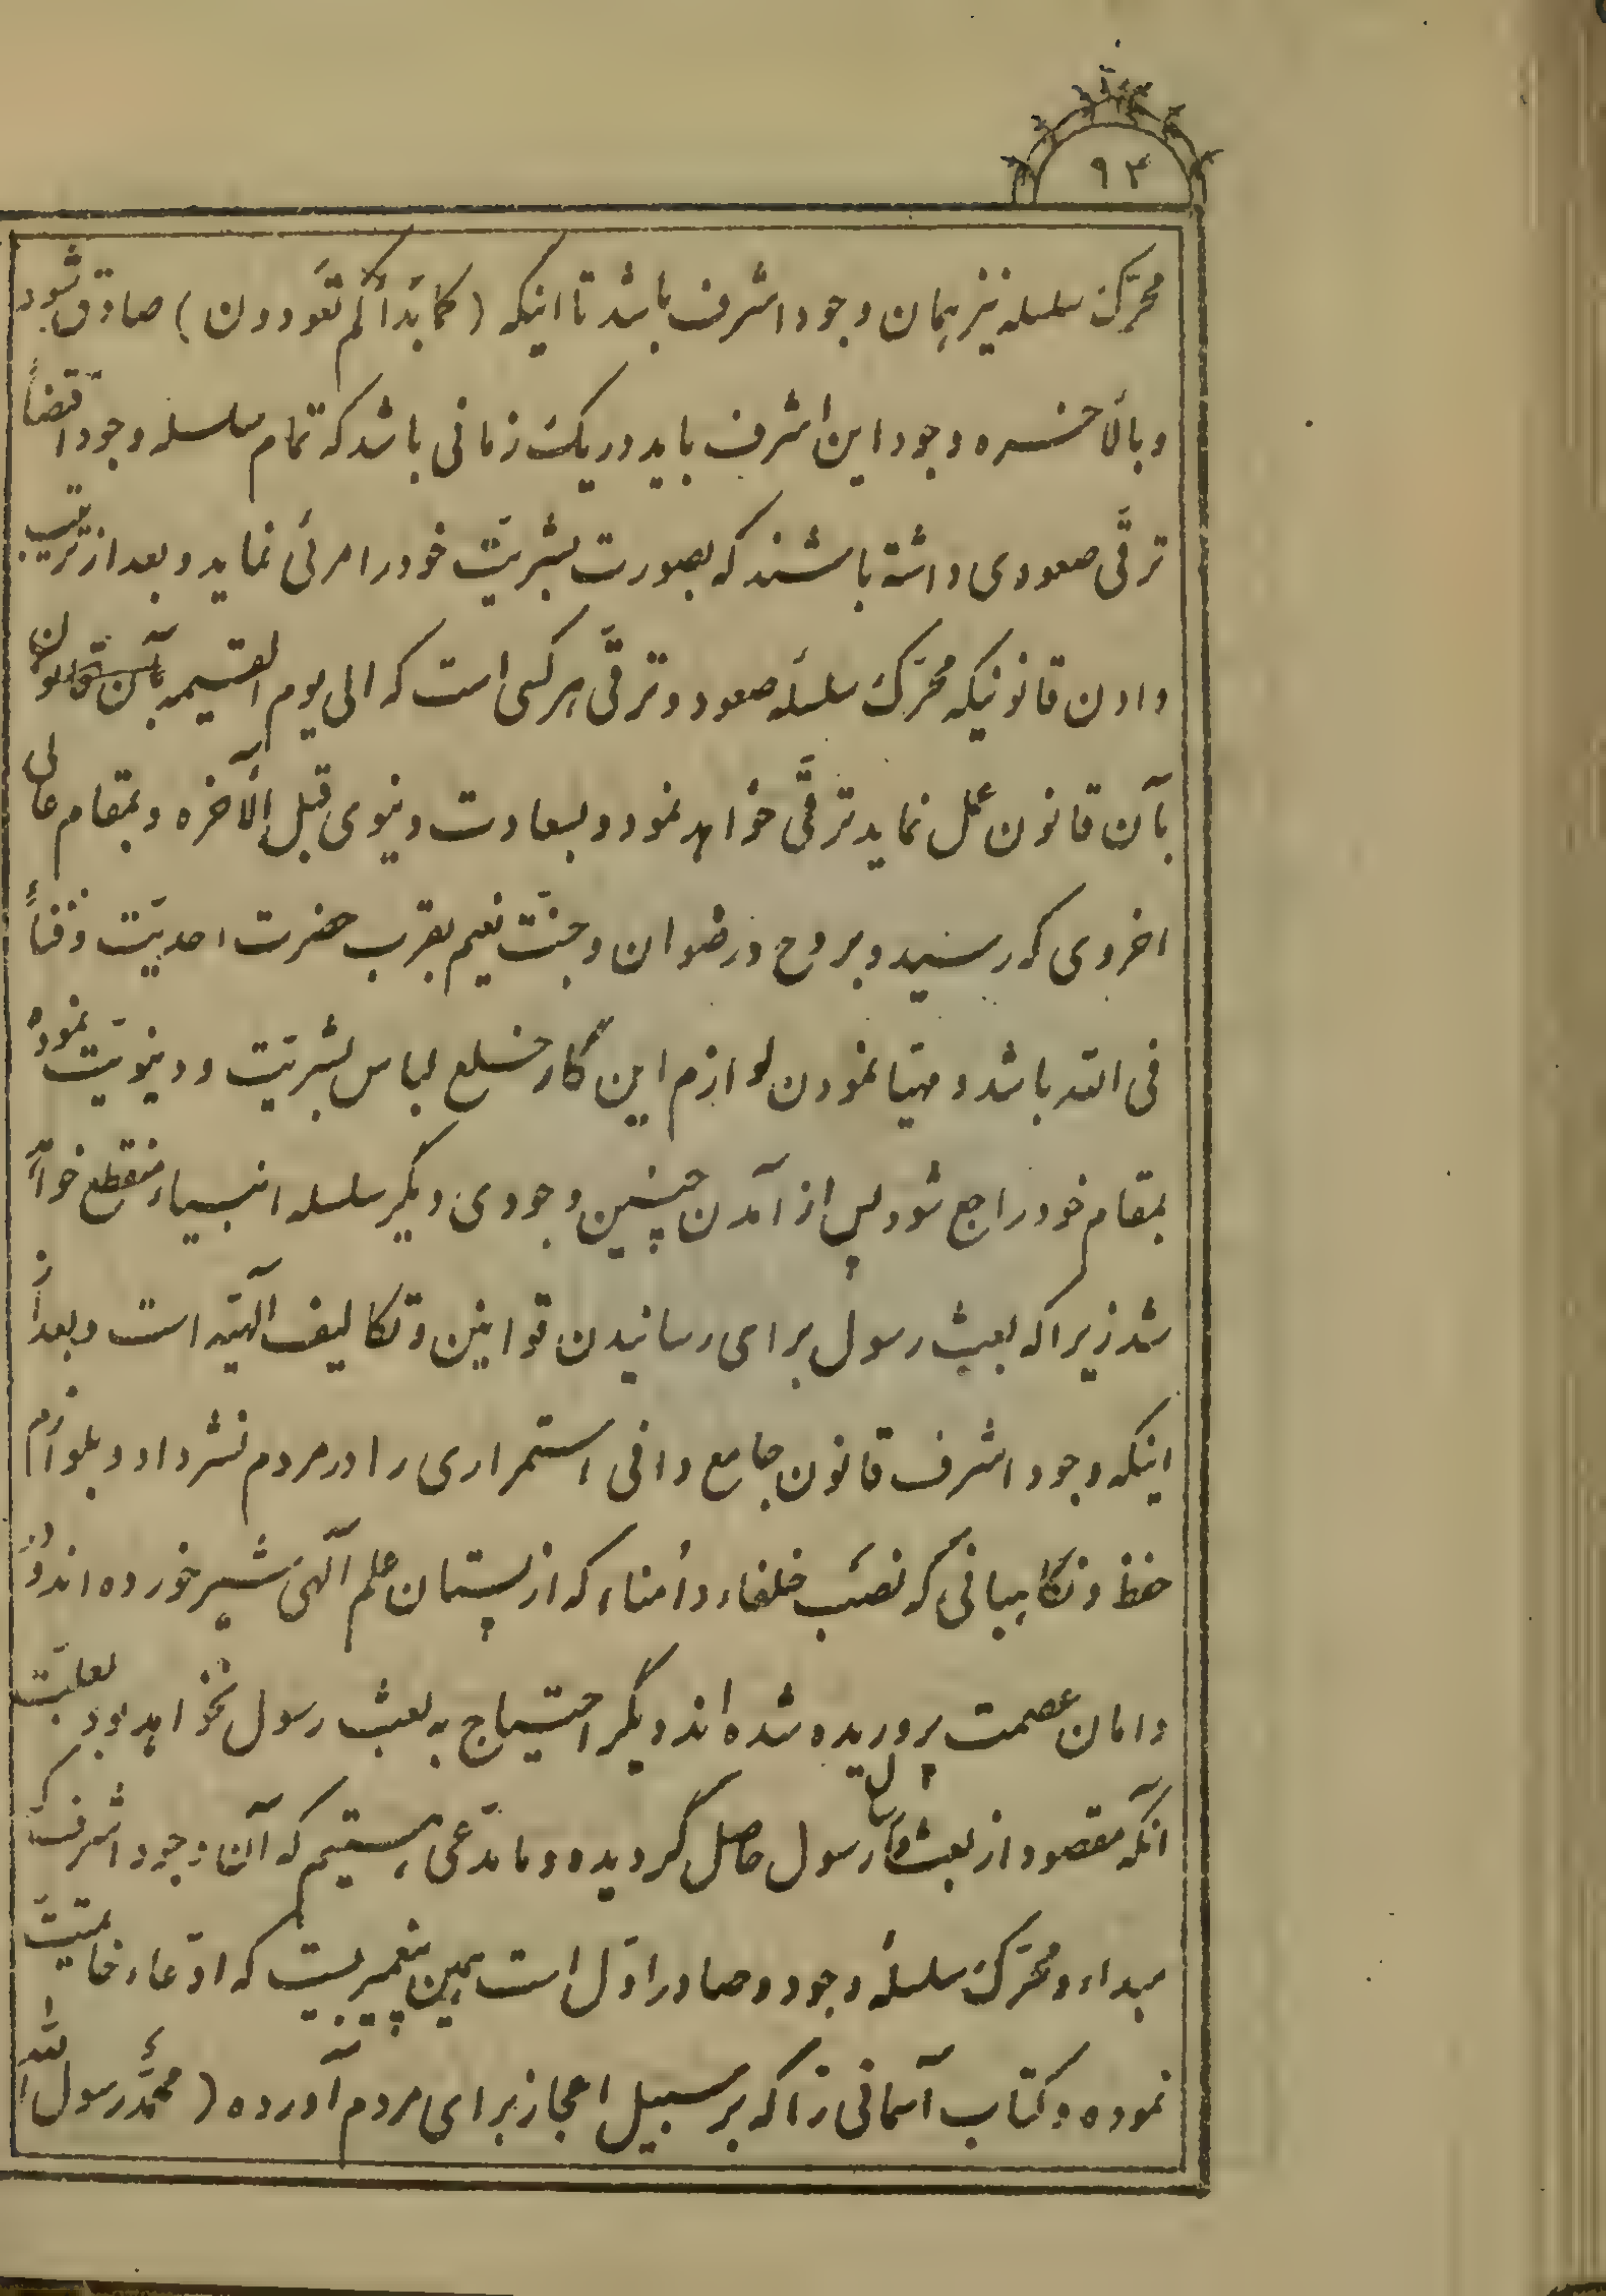 ۹۳
محرّک سلسله نیز همان وجود اشرف باشد تا اینکه (کما بَدأکُم تَعودون) صادق شود
و بالأخره وجود این اشرف باید در یک زمانی باشد که تمام سلسله وجود اقتضاً
ترقّی صعودی داشته باشند که بصورت بشریّت خود را مرئی نماید و بعد از ترتیب
دادن قانونیکه محرّک سلسلهٔ صعود و ترقّی هر کسی است که الی یوم القیمه
بآن قانون عمل نماید ترقّی خواهد نمود و بسعادت دنیوی قبل الآخره و بمقام عالی
اخروی که رسیده و بروح و رضوان و جنّت نعیم بقرب حضرت احدیّت و فناً
فی الله باشد و مهیّا نمودن لوازم این کار خلع لباس بشریّت و دنیویّت نموده
بمقام خود راجع شود پس از آمدن چنین وجودی دیگر سلسله انبیاء منقطع خواهد
شد زیرا که بعث رسول برای رسانیدن قوانین و تکالیف الهیّه است و بعد از
اینکه وجود اشرف قانون جامع وافی استمراری را در مردم نشر داد و بلوازم
حفظ و نگاهبانی که نصب خلفاء و أمناء که از پستان علم الهی شیر خورده اند و در
دامان عصمت پروریده شده اند دیگر احتیاج به بعث رسول نخواهد بود بعلّت
آنکه مقصود از بعث و ارسال رسول حاصل گردیده و ما مدّعی هستیم که آن وجود اشرف که
مبداء و محرّک سلسلهٔ وجود و صادر اوّل است همین پیغمبریست که ادّعاء خاتمیّت
نموده و کتاب آسمانی را که بر سبیل اعجاز برای مردم آورده (محمّدٌ رسول الله